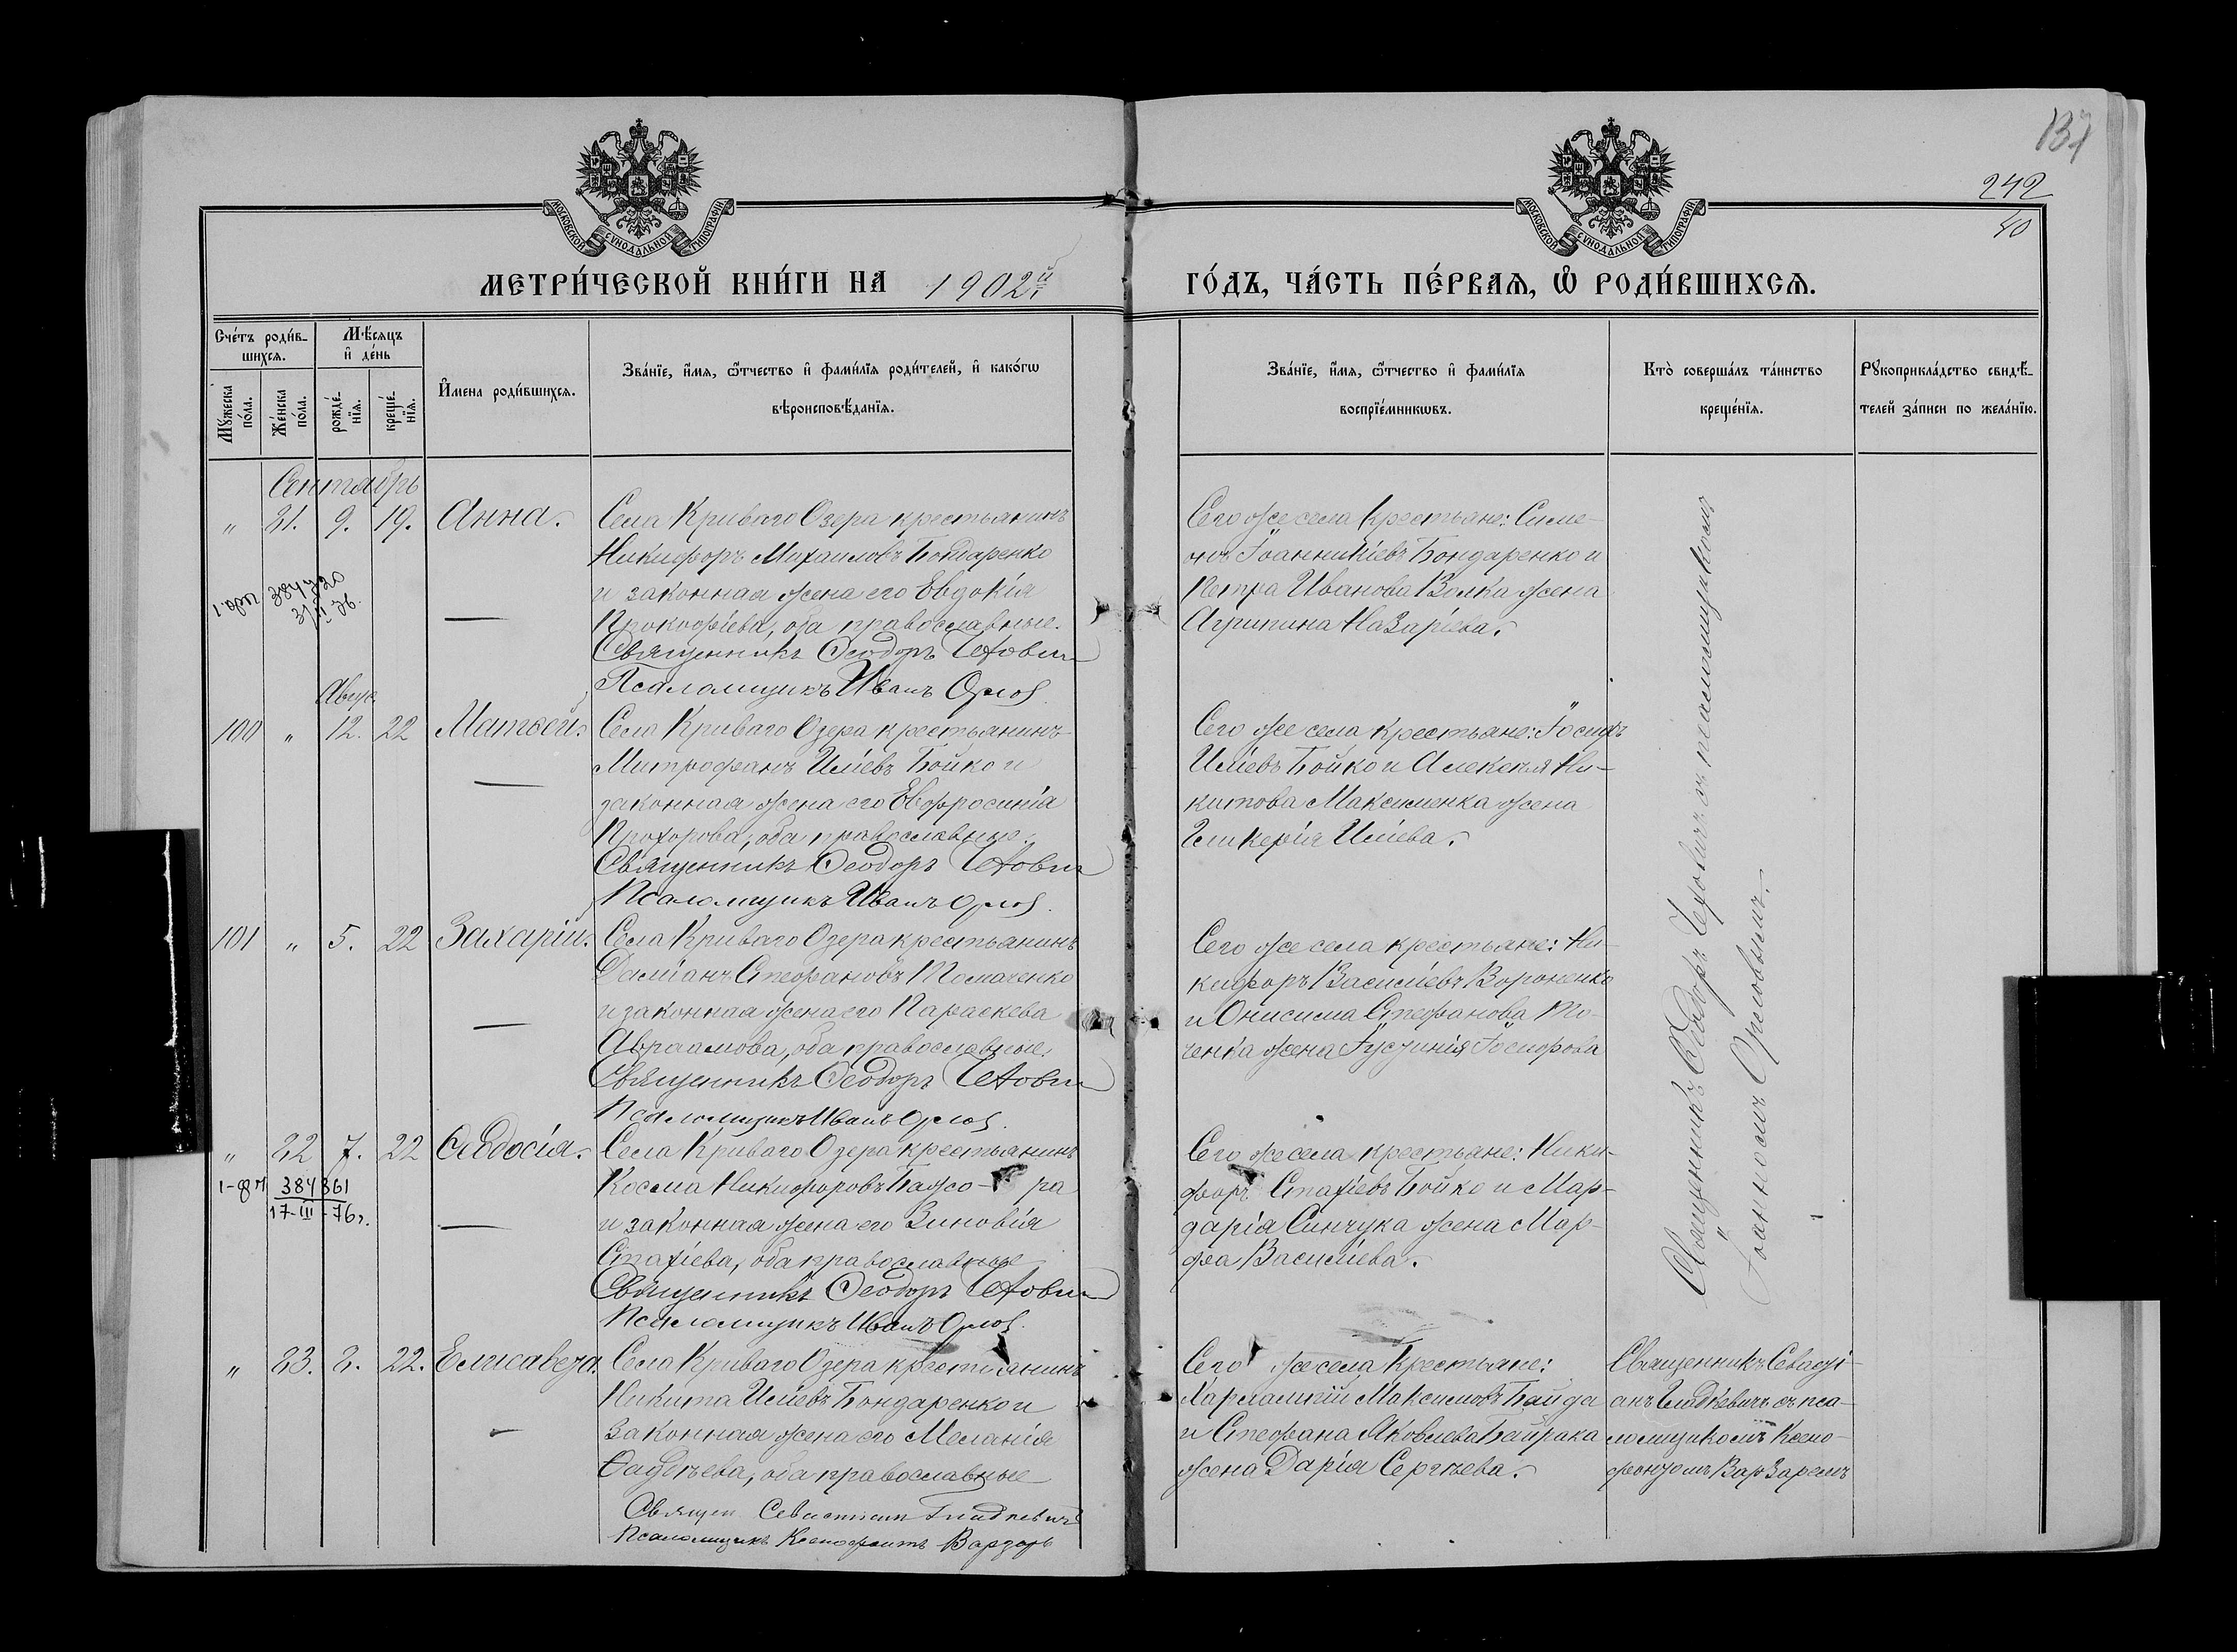 137
242
40
МОСКОВСКОЙ СѴНОДАЛЬНОЙ ТИПОГРАФІИ
МОСКОВСКОЙ СѴНОДАЛЬНОЙ ТИПОГРАФІИ
МЕТРИ́ЧЕСКОЙ КНИ́ГИ НА 1902й
ГО́ДЪ, ЧА́СТЬ ПЕ́РВАѦ, Ѡ҆ РОДИ́ВШИХСѦ.
Сче́тъ роди́в-
шихсѧ.
Мꙋ́жеска по́ла.
Же́нска по́ла.
Мѣ́сѧцъ
и҆ де́нь
рожде́-
нїѧ.
креще́-
нїѧ.
И҆мена роди́вшихсѧ.
Зва́нїе, и҆́мѧ, ѻ҆́тчество и҆ фами́лїѧ роди́телей, и҆ како́гѡ
вѣроисповѣ́данїѧ.
Зва́нїе, и҆́мѧ, ѻ҆́тчество и҆ фами́лїѧ
воспрїе́мникѡвъ.
Кто̀ соверша́лъ та́инство
креще́нїѧ.
Рꙋкоприкла́дство свидѣ́-
телей за́писи по жела́нїю.
Сентябрь
" 81. 9. 19. Анна.
Села Криваго Озера крестьянинъ
Никифоръ Михаиловъ Бондаренко
и законная жена его Евдокія
Прокофіева, оба православные.
Священникъ Ѳеодоръ
Псаломщикъ Иванъ Орлов
Сего же села крестьяне: Симе-
онъ Іоанникіевъ Бондаренко и
Петра Иванова Волка жена
Агрипина Назаріева.
Авгус.
100 " 12. 22 Матѳей.
Села Криваго Озера крестьянинъ
Митрофанъ Иліевъ Бойко и
законная жена его Евфросинія
Прохорова, оба православные.
Священникъ Ѳеодоръ
Псаломщикъ Иванъ Орлов
Сего же села крестьяне: Іосифъ
Иліевъ Бойко и Алексѣя Ни-
китова Максименка жена
Гликерія Иліева.
101 " 5. 22 Захарій.
Села Криваго Озера крестьянинъ
Даміанъ Стефановъ
и законная жена его Параскева
Авраамова, оба православные.
Священникъ Ѳеодоръ
Псаломщикъ Иванъ Орлов
Сего же села крестьяне: Ни-
кифоръ Василіевъ Вороненко
и Онисима Стефанова То-
ченка жена Іустинія Іосифова
" 82 7. 22 Ѳеодосія.
384361
17-III-76г.
Села Криваго Озера крестьянинъ
Косма Никифоровъ
и законная жена его Зиновія
Стахіева, оба православные
Священникъ Ѳеодоръ
Псаломщикъ Иванъ Орлов
Сего же села крестьяне: Ники-
форъ Стахіевъ Бойко и Мар-
дарія Синчука жена Мар-
фа Василіева.
Священникъ Ѳеодоръ съ псаломщикомъ
Іоанномъ Орловымъ.
" 83. 8. 22. Елисавета.
Села Криваго Озера крестьянинъ
Никита Иліевъ Бондаренко и
законная жена его Меланія
Ѳаддѣева, оба православные
Священ Севастиан Гладкевичъ
Псаломщикъ Ксенофонтъ Варзарь
Сего же села крестьяне:
Харлампій Максимовъ Байда
и Стефана Яковлева Байрака
жена Дарія Сергѣева.
Священникъ Севасті-
анъ Гладкевичъ съ пса-
ломщикомъ Ксено-
фонтомъ Варзаремъ